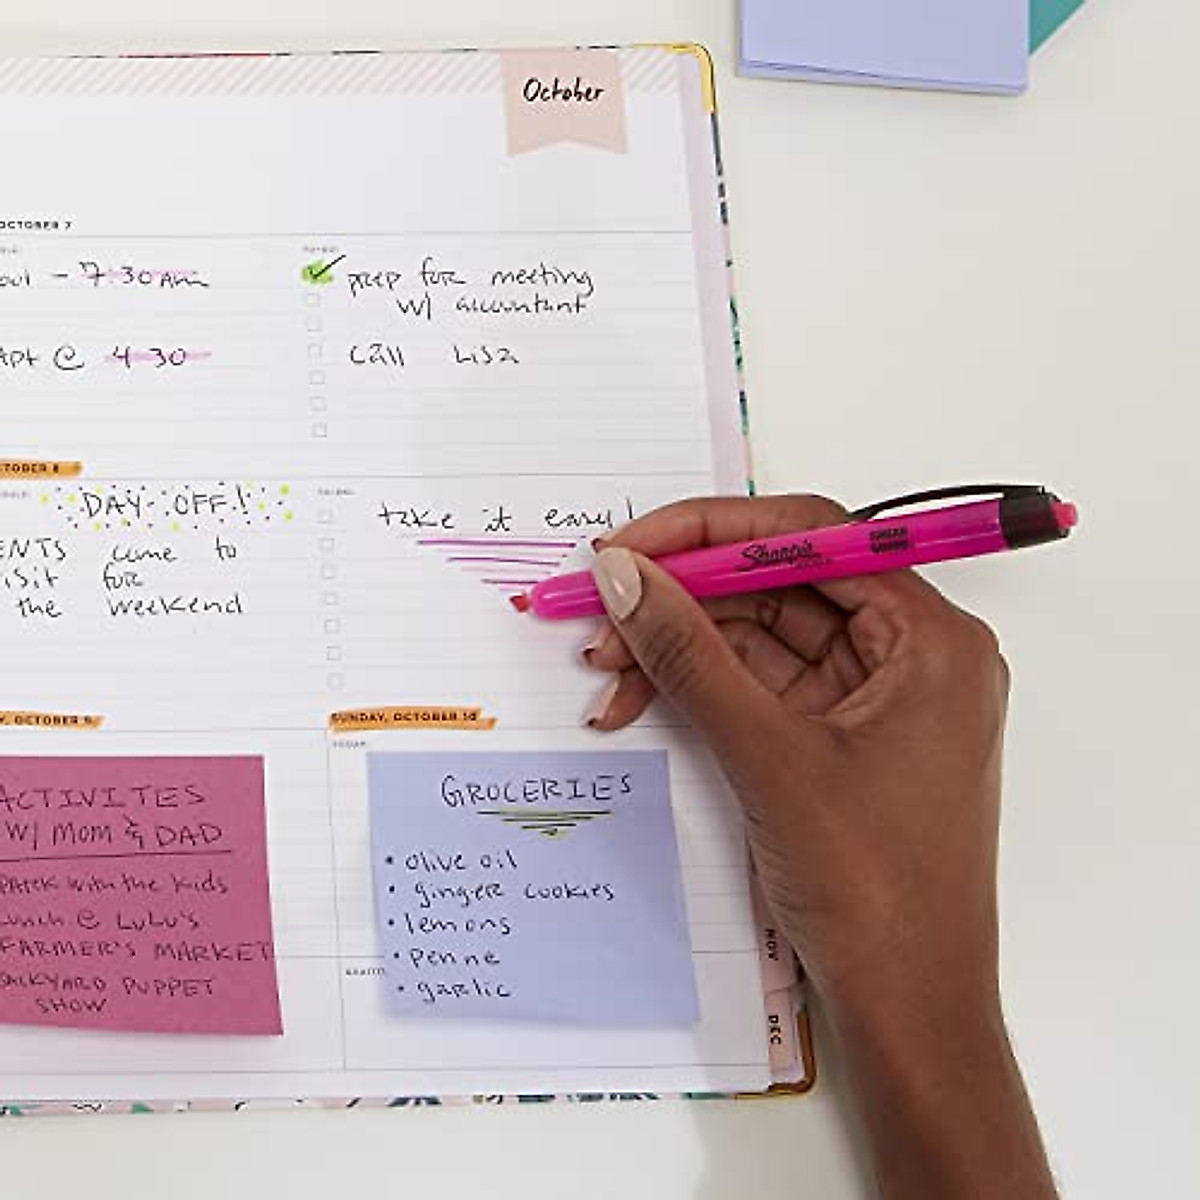 October
OCTOBER 7
- 7:30 AM
prep for meeting
w/ accountant
Apt @ 4:30
call Lisa
OCTOBER 8
DAY OFF!
take it easy!
come to
visit for
the weekend
Sharpie
SMEAR
GUARD
OCTOBER 9
SUNDAY, OCTOBER 10
TODAY
ACTIVITES
W/ Mom & DAD
PARK with the kids
Lunch @ LuLu's
FARMER'S MARKET
BACKYARD PUPPET
SHOW
GROCERIES
• olive oil
• ginger cookies
• lemons
• penne
• garlic
NOV
DEC